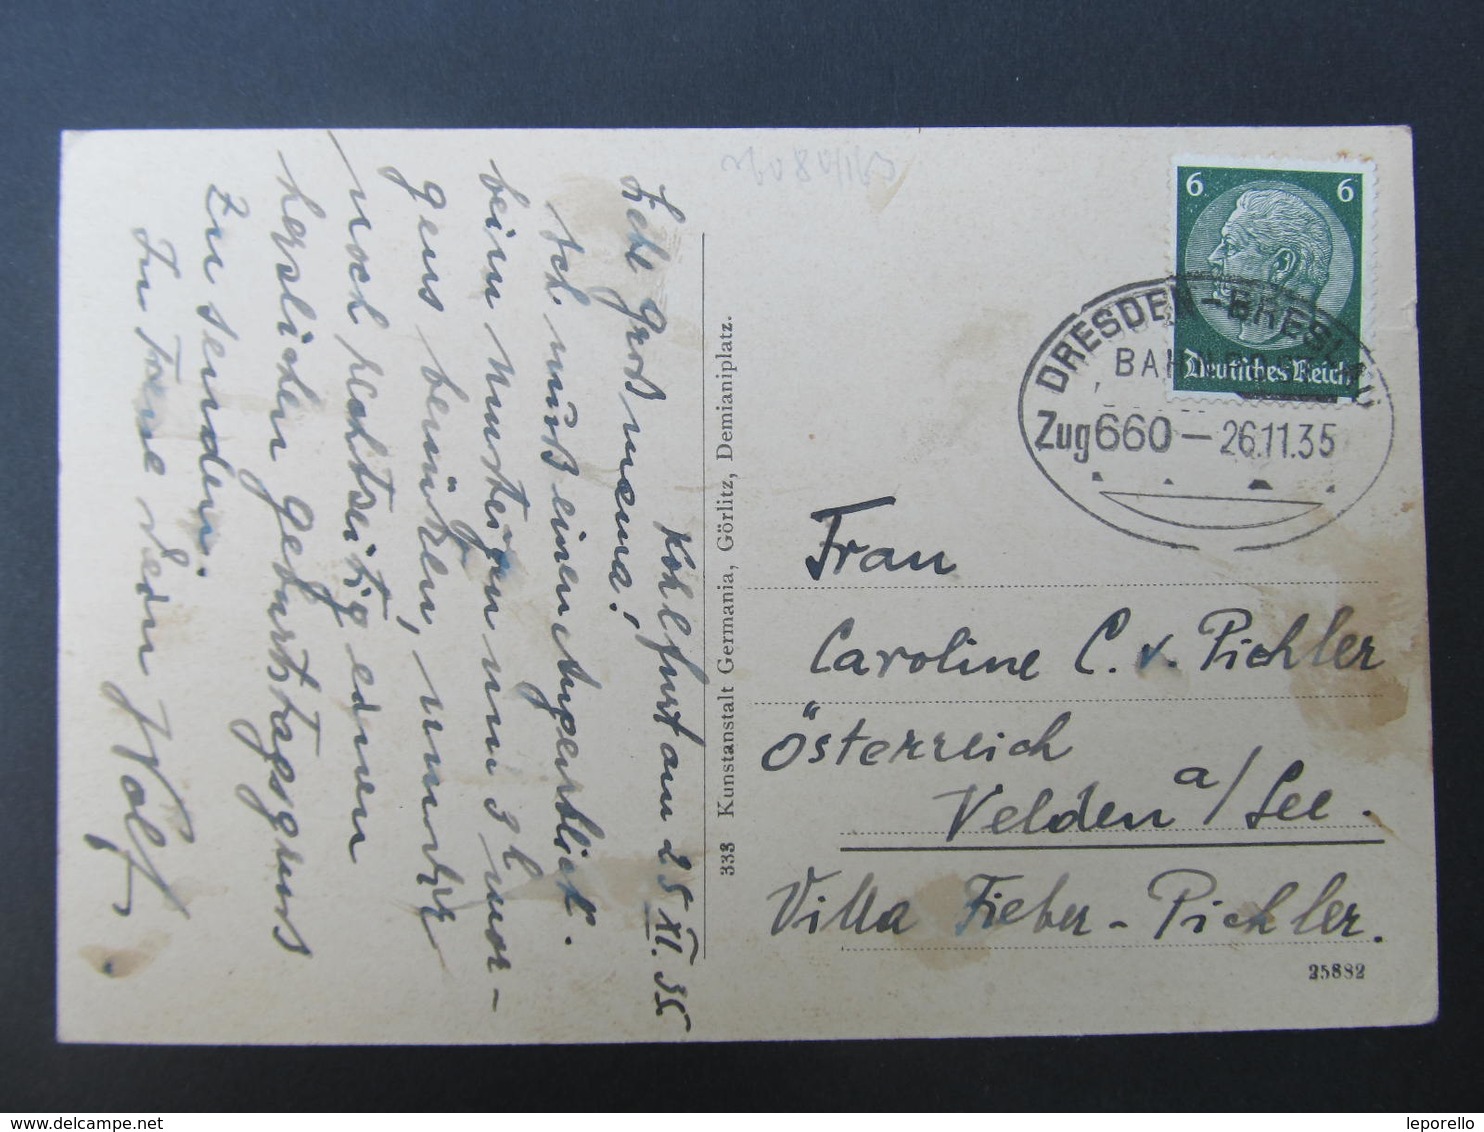 Kohlfurt am 25 XI. 35
Großmama!
Ich muß einen Augenblick
beim Umsteigen um 3h mor-
gens benützen, um Dir
noch rechtzeitig einen
herzlichen Geburtstagsgruss
zu senden.
In Treue Dein
Wolf
333 Kunstanstalt Germania, Görlitz, Demianiplatz.
6 6
Deutsches Reich
DRESDEN-BRESLAU
BAHNPOST
Zug 660 — 26.11.35
Frau
Caroline C. v. Pichler
Österreich
Velden a/See.
Villa Fieber-Pichler.
25882
www.delcampe.net
leporello